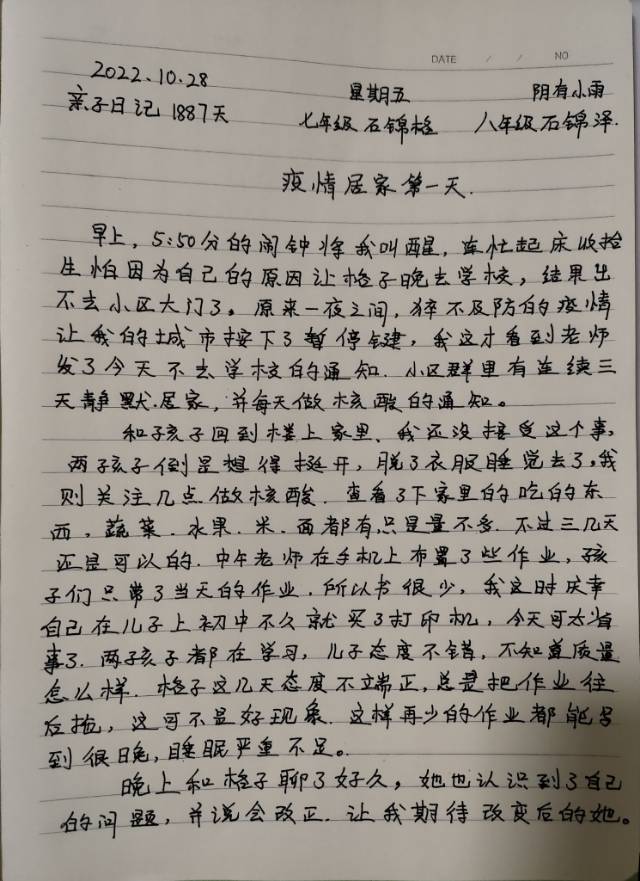 DATE / / NO
2022.10.28 星期五 阴有小雨
亲子日记 1887天 七年级 石锦格 八年级 石锦泽.
疫情居家第一天.
早上，5:50分的闹钟将我叫醒，连忙起床收拾
生怕因为自己的原因让格子晚去学校，结果出
不去小区大门了。原来一夜之间，猝不及防的疫情
让我的城市按下了暂停键，我这才看到老师
发了今天不去学校的通知.小区群里有连续三
天静默.居家，并每天做核酸的通知。
和孩子回到楼上家里、我还没接受这个事，
两孩子倒是想得挺开，脱了衣服睡觉去了，我
则关注几点做核酸.查看了下家里的吃的东
西，蔬菜.水果.米.面都有只是量不多.不过三几天
还是可以的.中午老师在手机上布置了些作业，孩
子们只带了当天的作业.所以书很少，我这时庆幸
自己在儿子上初中不久就买了打印机，今天可太省
事了.两孩子都在学习，儿子态度不错，不知道质量
怎么样.格子这几天态度不端正，总是把作业往
后拖，这可不是好现象.这样再少的作业都能写
到很晚，睡眠严重不足。
晚上和格子聊了好久，她也认识到了自己
的问题，并说会改正.让我期待改变后的她。